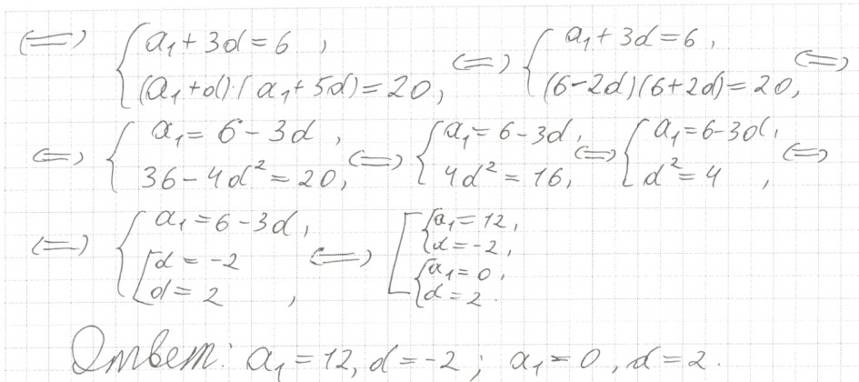 ⟺ { a₁ + 3d = 6 , (a₁ + d)·(a₁ + 5d) = 20, ⟺ { a₁ + 3d = 6, (6 − 2d)(6 + 2d) = 20, ⟺
⟺ { a₁ = 6 − 3d , 36 − 4d² = 20, ⟺ { a₁ = 6 − 3d, 4d² = 16, ⟺ { a₁ = 6 − 3d, d² = 4 , ⟺
⟺ { a₁ = 6 − 3d, [ d = −2 d = 2 , ⟺ [ { a₁ = 12, d = −2, { a₁ = 0, d = 2.
Ответ: a₁ = 12, d = −2 ; a₁ = 0 , d = 2.